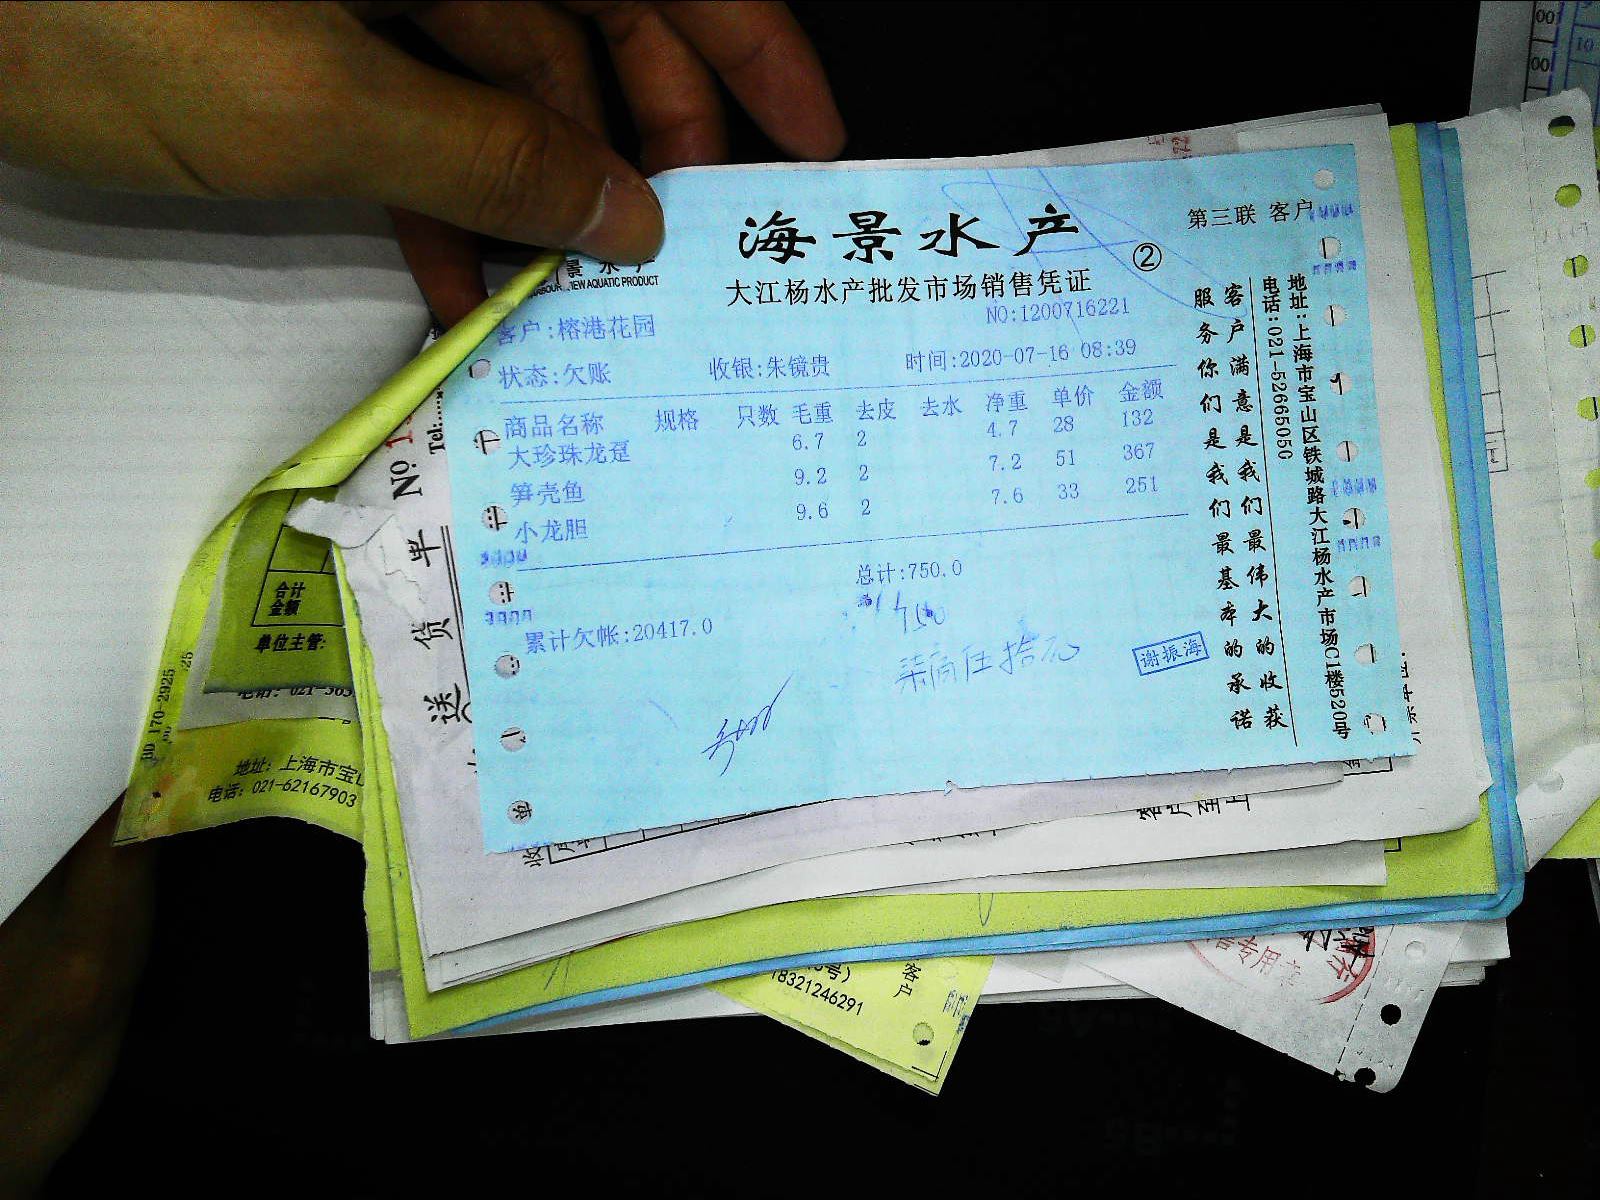 海景水产
景 水 产
VIEW AQUATIC PRODUCT
大江杨水产批发市场销售凭证
②
第三联 客户
NO:1200716221
客户:榕港花园
状态:欠账 收银:朱镜贵 时间:2020-07-16 08:39
商品名称 规格 只数 毛重 去皮 去水 净重 单价 金额
大珍珠龙趸 6.7 2 4.7 28 132
笋壳鱼 9.2 2 7.2 51 367
小龙胆 9.6 2 7.6 33 251
总计:750.0
累计欠帐:20417.0
750
柒佰伍拾元
谢振海
客户满意是我们最伟大的收获
服务你们是我们最基本的承诺
地址:上海市宝山区铁城路大江杨水产市场C1楼520号
电话:021-52665050
Tel:
No
送货单
合计
金额
单位主管:
电话: 021-563
BD 170-2925
地址: 上海市宝山
电话: 021-62167903
18321246291
客户
专用章